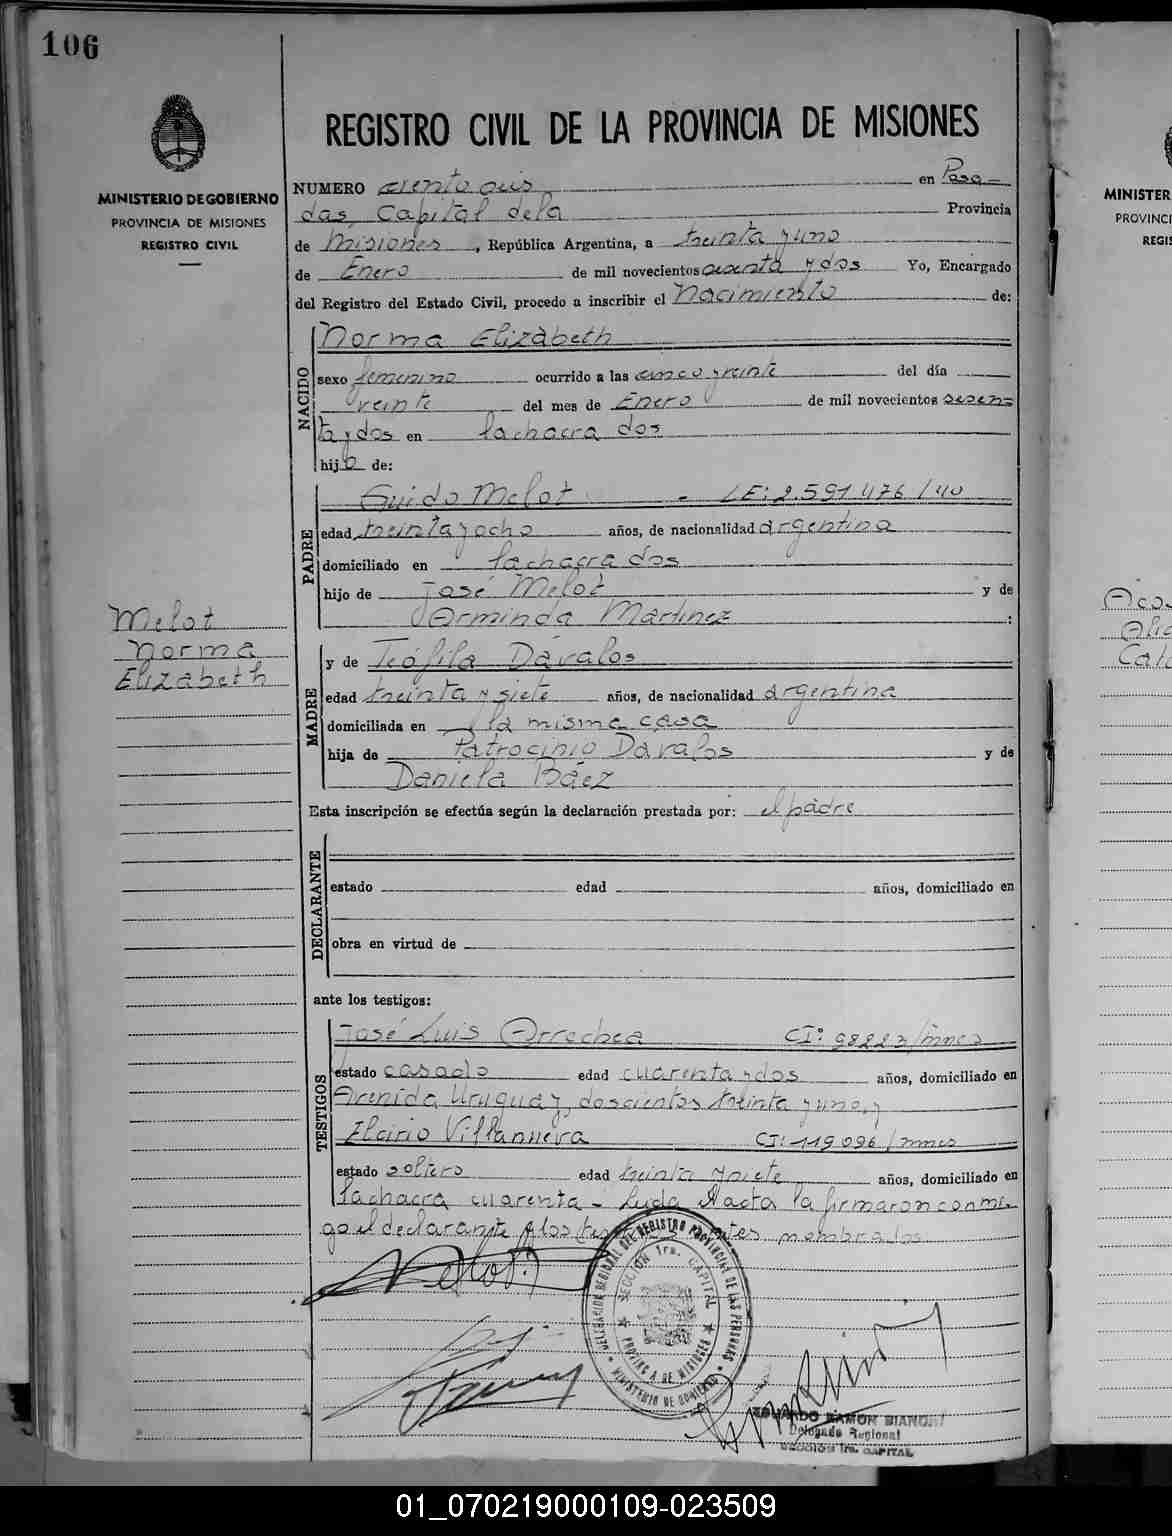 106
MINISTERIO DE GOBIERNO
PROVINCIA DE MISIONES
REGISTRO CIVIL
REGISTRO CIVIL DE LA PROVINCIA DE MISIONES
NUMERO ciento seis en Posa-
das, Capital dela Provincia
de Misiones, República Argentina, a treinta y uno
de Enero de mil novecientos sesenta y dos Yo, Encargado
del Registro del Estado Civil, procedo a inscribir el Nacimiento de:
NACIDO
Norma Elizabeth
sexo femenino ocurrido a las cinco y veinte del día
veinte del mes de Enero de mil novecientos sesen=
ta y dos en la chacra dos
hija de:
PADRE
Guido Melot - LE: 2.591.476/40
edad treinta y ocho años, de nacionalidad argentina
domiciliado en la chacra dos
hijo de José Melot y de
Orminda Martinez :
MADRE
y de Teófila Dávalos
edad treinta y siete años, de nacionalidad argentina
domiciliada en la misma casa
hija de Patrocinio Dávalos y de
Daniela Báez
Melot
Norma
Elizabeth
Esta inscripción se efectúa según la declaración prestada por: el padre
DECLARANTE
estado edad años, domiciliado en
obra en virtud de
ante los testigos:
TESTIGOS
José Luis Orrechea CI: 98223/mnes
estado casado edad cuarenta y dos años, domiciliado en
Avenida Uruguay, doscientos treinta y uno, y
Elcirio Villanueva CI: 119096/mnes
estado soltero edad treinta y siete años, domiciliado en
la chacra cuarenta - Leida el acta la firmaron conmi-
go el declarante y los nombrados
Melot
DELEGACION REGIONAL DEL REGISTRO PROVINCIAL DE LAS PERSONAS
SECCION 1ra. CAPITAL
PROVINCIA DE MISIONES
MINISTERIO DE GOBIERNO
EDUARDO RAMON BIANCHI
Delegado Regional
SECCION 1ra. CAPITAL
MINISTER
PROVINCI
REGIS
01_070219000109-023509